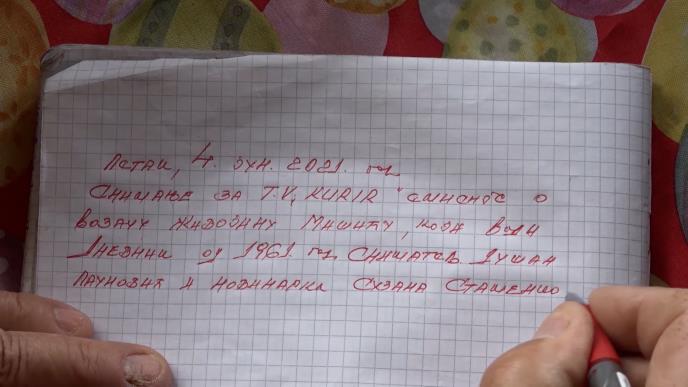 Петак, 4. јун. 2021. год
Снимање за T.V, KURIR о
возачу Живојину Мишићу, који води
Дневник од 1961. год Сниматељ Душан
Пауновић и новинарка Сузана Сташенко